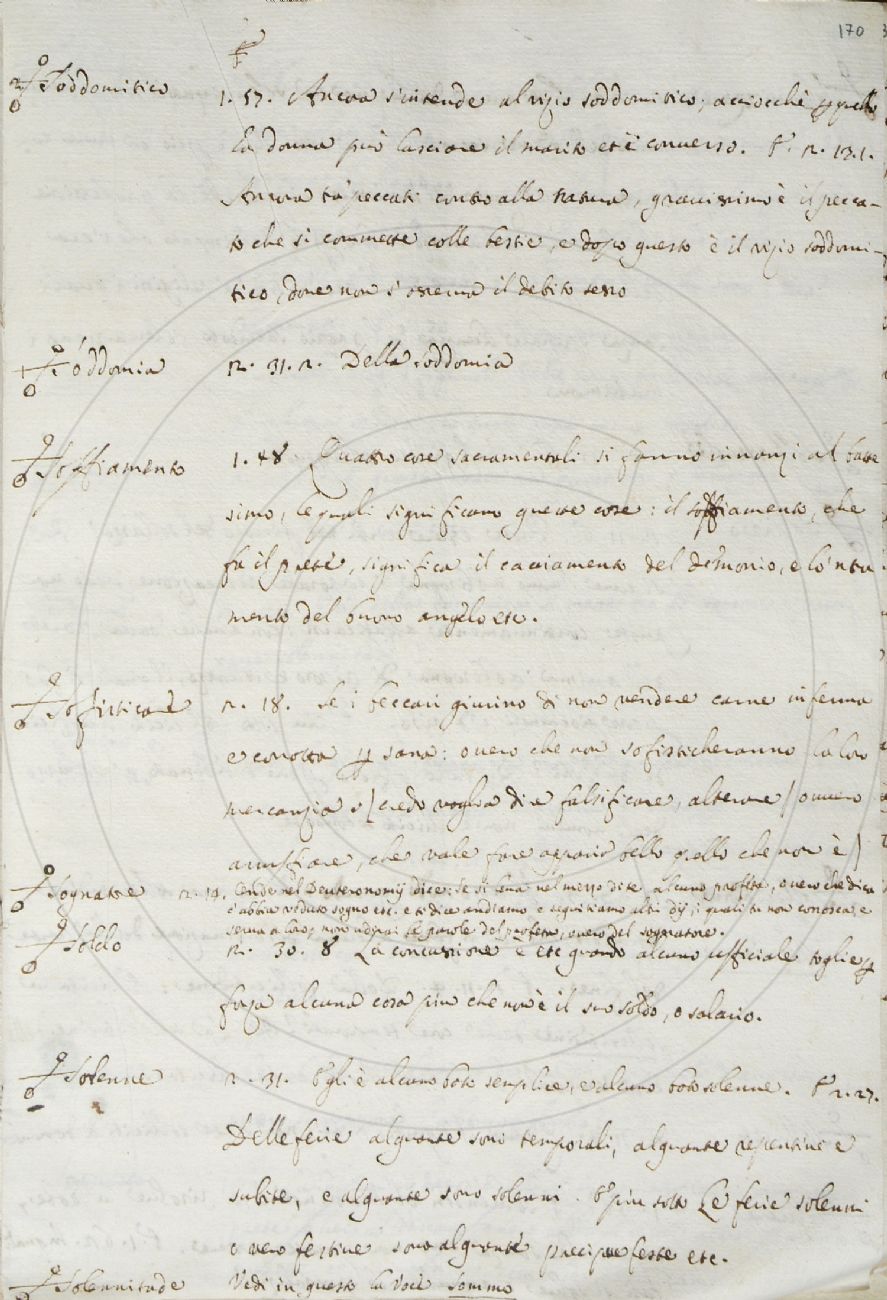 170
Soddomitico 1. 57. Ancora s'intende al vizio soddomitico; acciocchè per quello
la donna può lasciare il marito et è converso. E. 2. 13. 1.
Ancora tra' peccati contro alla natura, gravissimo è il pecca-
to che si commette colle bestie, e dopo questo è il vizio soddomi-
tico, dove non s'osserva il debito sesso
Soddomia 2. 31. 2. Della soddomia
Soffiamento 1. 48 Quattro cose sacramentali si fanno innanzi al batte
simo, le quali significano queste cose: il soffiamento, che
fa il prete, significa il cacciamento del demonio, e lo 'ntra
mento del buono angelo etc.
Sofisticare 2. 18. Se i beccari giurino di non vendere carne inferma
e corrotta per sana: overo che non sofisticheranno la loro
mercanzia [credo voglia dire falsificare, alterare] ovvero
, che vale fare apparir bello quello che non è]
Sognatore 2. 19. Onde nel Deuteronomij dice: Se si leva nel mezzo di te alcuno profeta, overo che dica
ch'abbia veduto sogno etc. e ti dice andiamo e seguitiamo altri dij, i quali tu non conosca, e
serva a loro; non udirai le parole del profeta, overo del sognatore.
Soldo 2. 30. 8 La concussione è etc quando alcuno ufficiale toglie per
forza alcuna cosa piu che non è il suo soldo, o salario.
Solenne 2. 31. Egli è alcuno boto semplice, e alcuno boto solenne. E 2. 27.
Delle ferie alquante sono temporali, alquante repentine e
subite, e alquante sono solenni. E più sotto Le ferie solenni
overo festive sono alquante precipue feste etc.
Solennitade Vedi in questo la voce Sommo